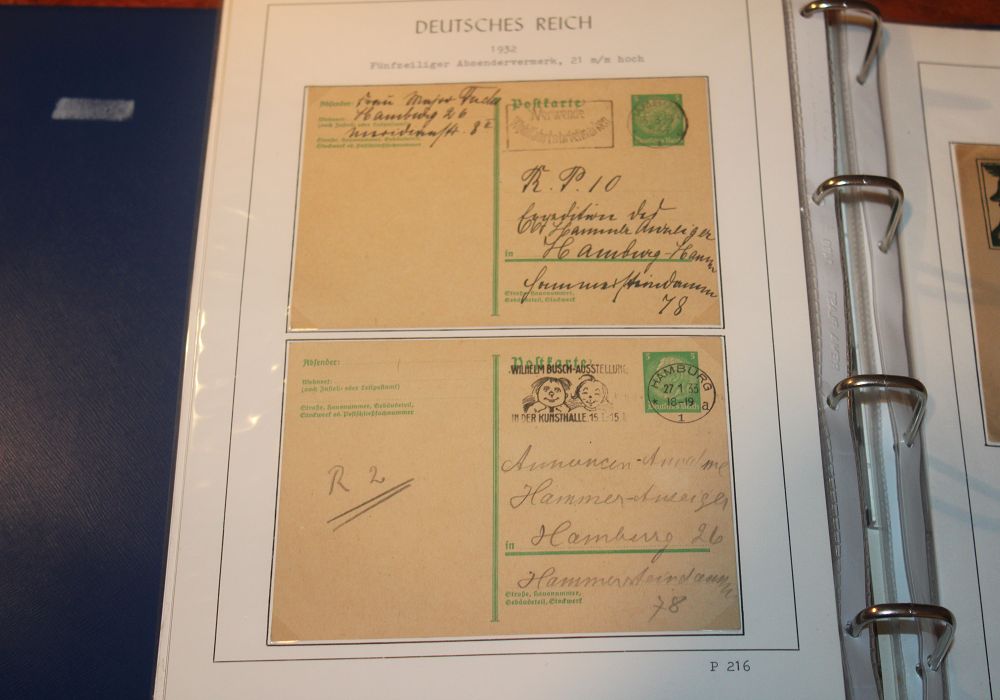 DEUTSCHES REICH
1932
Fünfzeiliger Absendervermerk, 21 m/m hoch
Absender: Frau Major
Wohnort: Hamburg 26
(auch Zustell- oder Leitpostamt)
Straße, Hausnummer, Gebäudeteil,
Stockwerk od. Postschließfachnummer
Postkarte
R. P. 10
Expedition des
Hammer Anzeiger
in Hamburg-Hamm
Hammersteindamm
78
Straße, Hausnummer,
Gebäudeteil, Stockwerk
Absender:
Wohnort:
(auch Zustell- oder Leitpostamt)
Straße, Hausnummer, Gebäudeteil,
Stockwerk od. Postschließfachnummer
R 2
Postkarte
WILHELM BUSCH-AUSSTELLUNG
IN DER KUNSTHALLE 15.
5 5
Deutsches Reich
HAMBURG
27.1.33
18-19
* a
1
Annoncen-Annahme
Hammer-Anzeiger
in Hamburg 26
Hammersteindamm
78
Straße, Hausnummer,
Gebäudeteil, Stockwerk
P 216